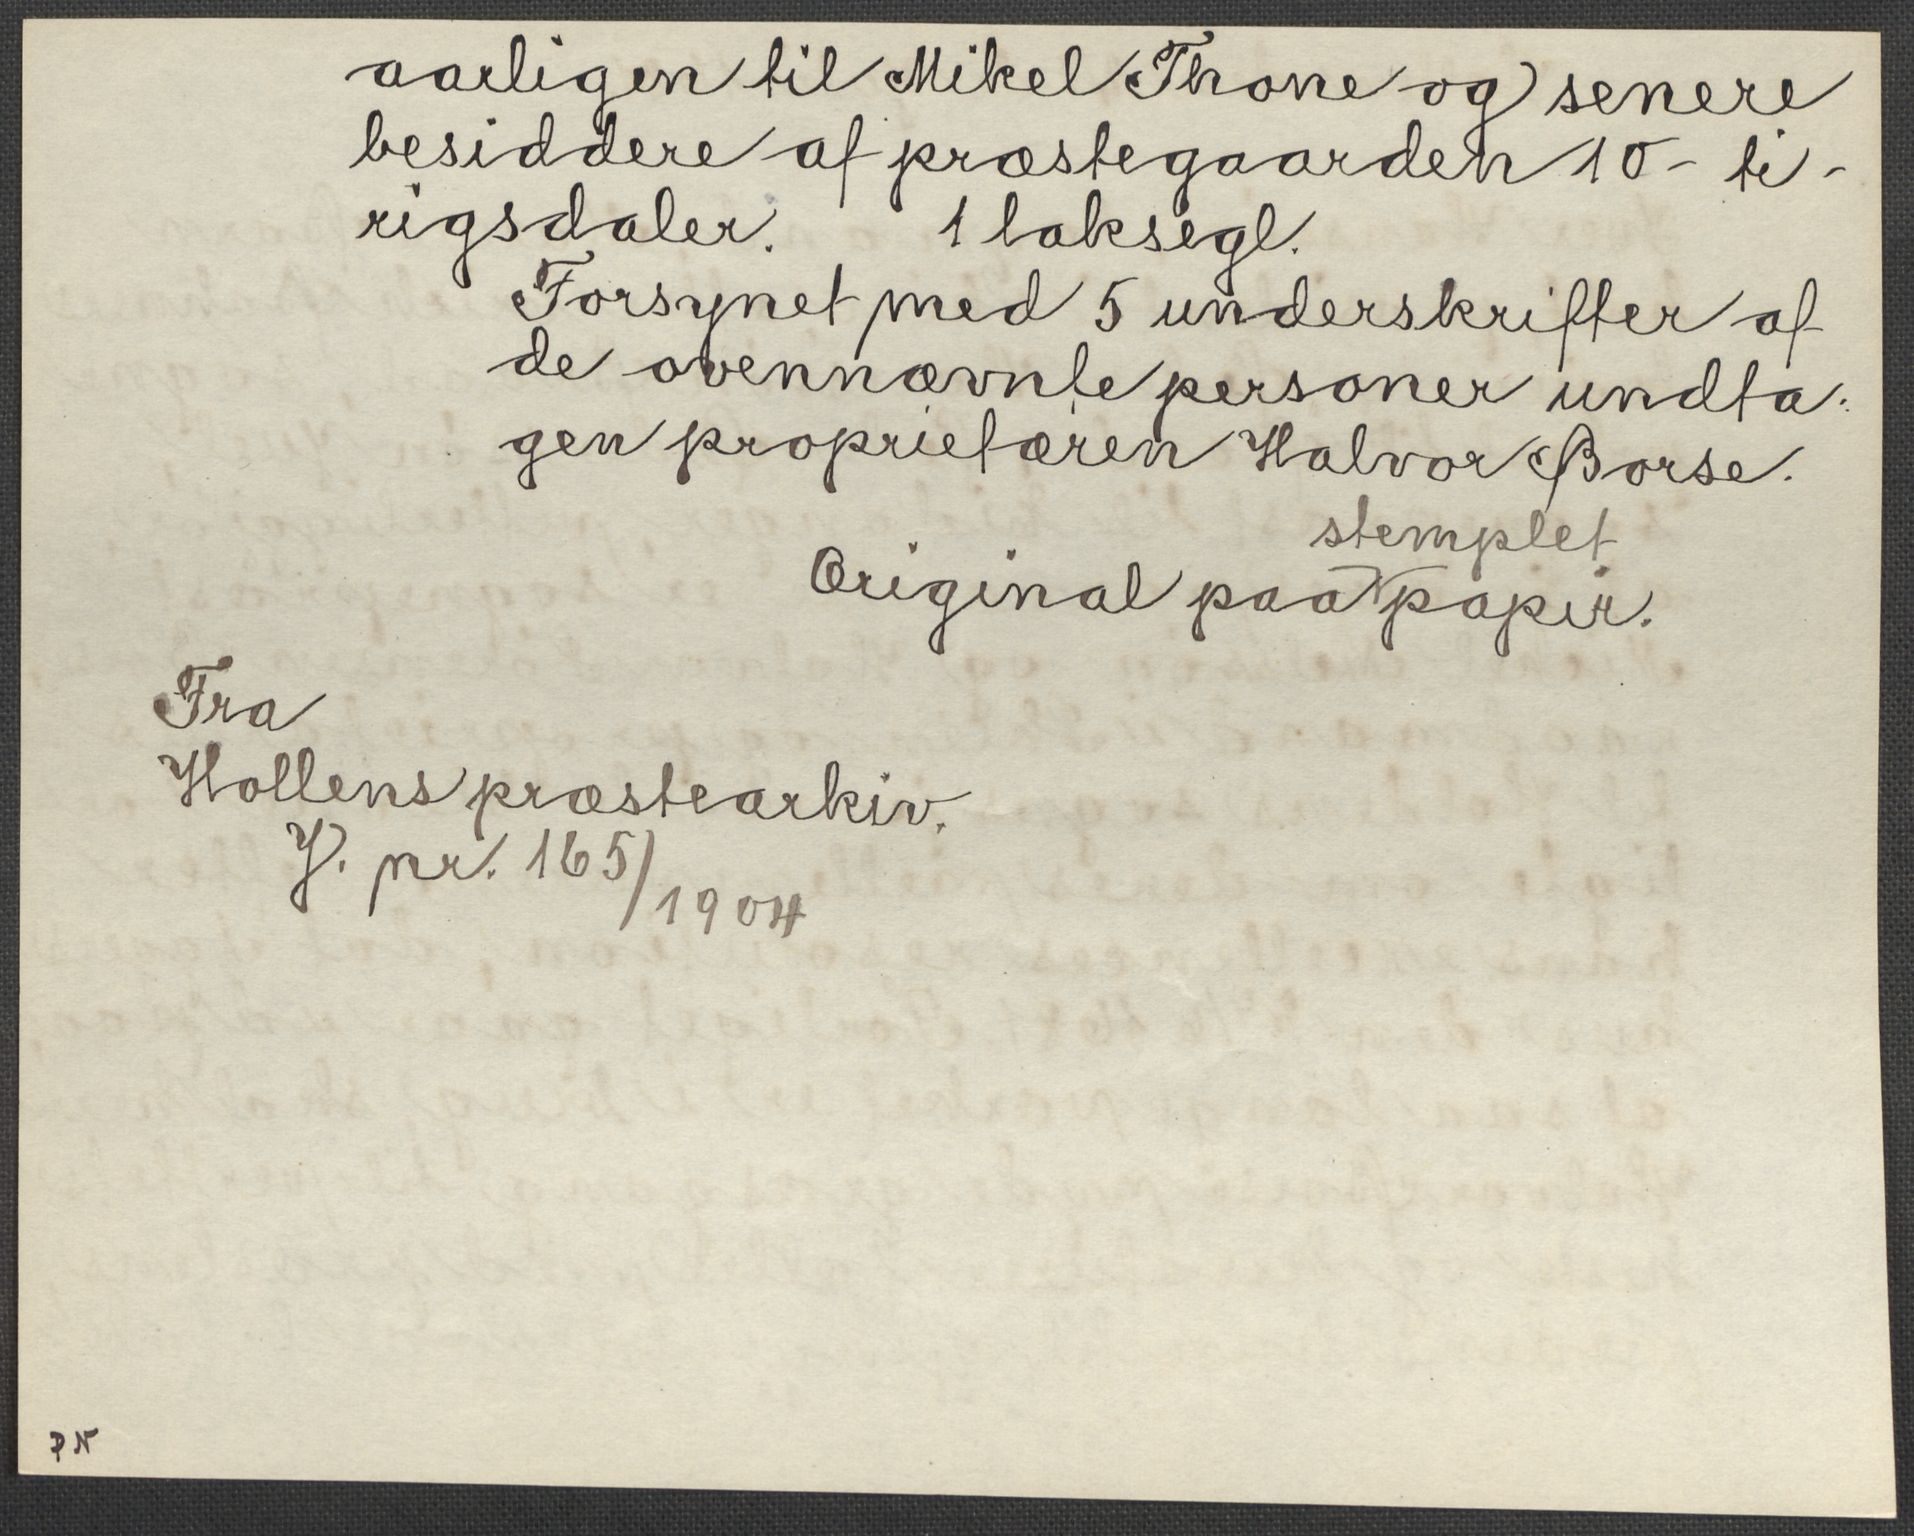 aarligen til Mikel Thone og senere
besiddere af præstegaarden 10 - ti -
rigsdaler. 1 laksegl.
Forsynet med 5 underskrifter af
de ovennævnte personer undta-
gen proprietæren Halvor Borse.
stemplet
Original paa papir.
Fra
Hollens præstearkiv.
J. nr. 165/1904
PN